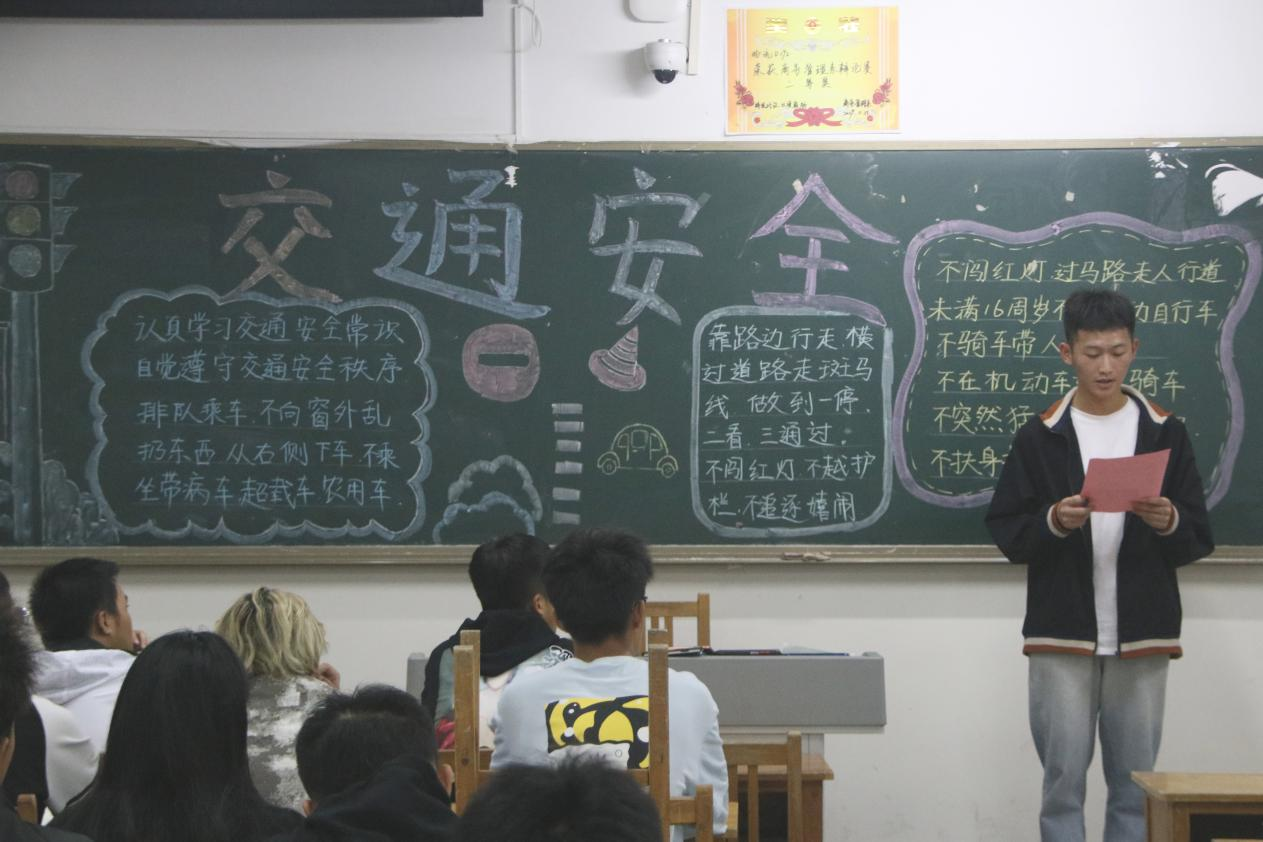 荣获商务管理系辩论赛
二等奖
交通安全
认真学习交通安全常识
自觉遵守交通安全秩序
排队乘车 不向窗外乱
扔东西 从右侧下车 不乘
坐带病车超载车农用车.
靠路边行走 横
过道路走斑马
线 做到一停.
二看.三通过.
不闯红灯 不越护
栏.不追逐嬉闹
不闯红灯 过马路走人行道
未满16周岁不 动自行车
不骑车带人
不在机动车 骑车
不突然猛
不扶身